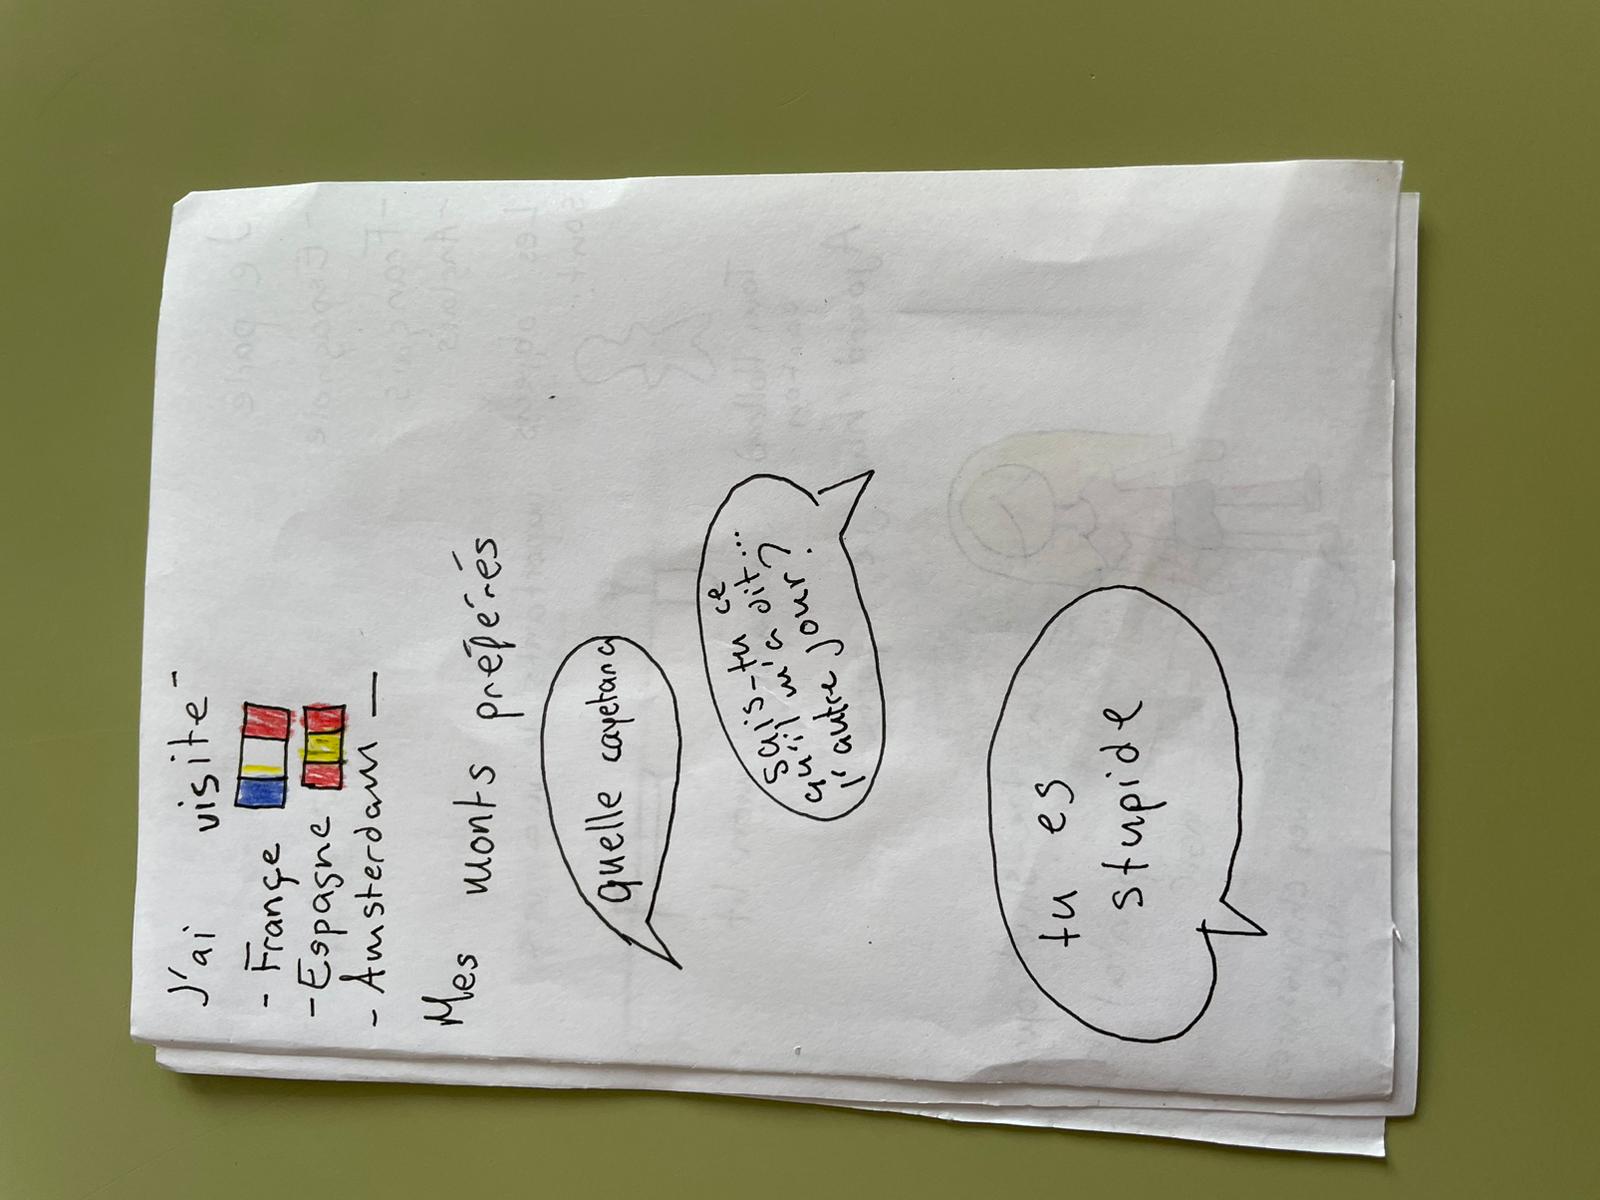 J'ai visite
- Françe
- Espagne
- Amsterdam
Mes monts préférés
quelle cayetana
sais-tu ce
qu'il m'a dit...
l'autre jour?
tu es
stupide